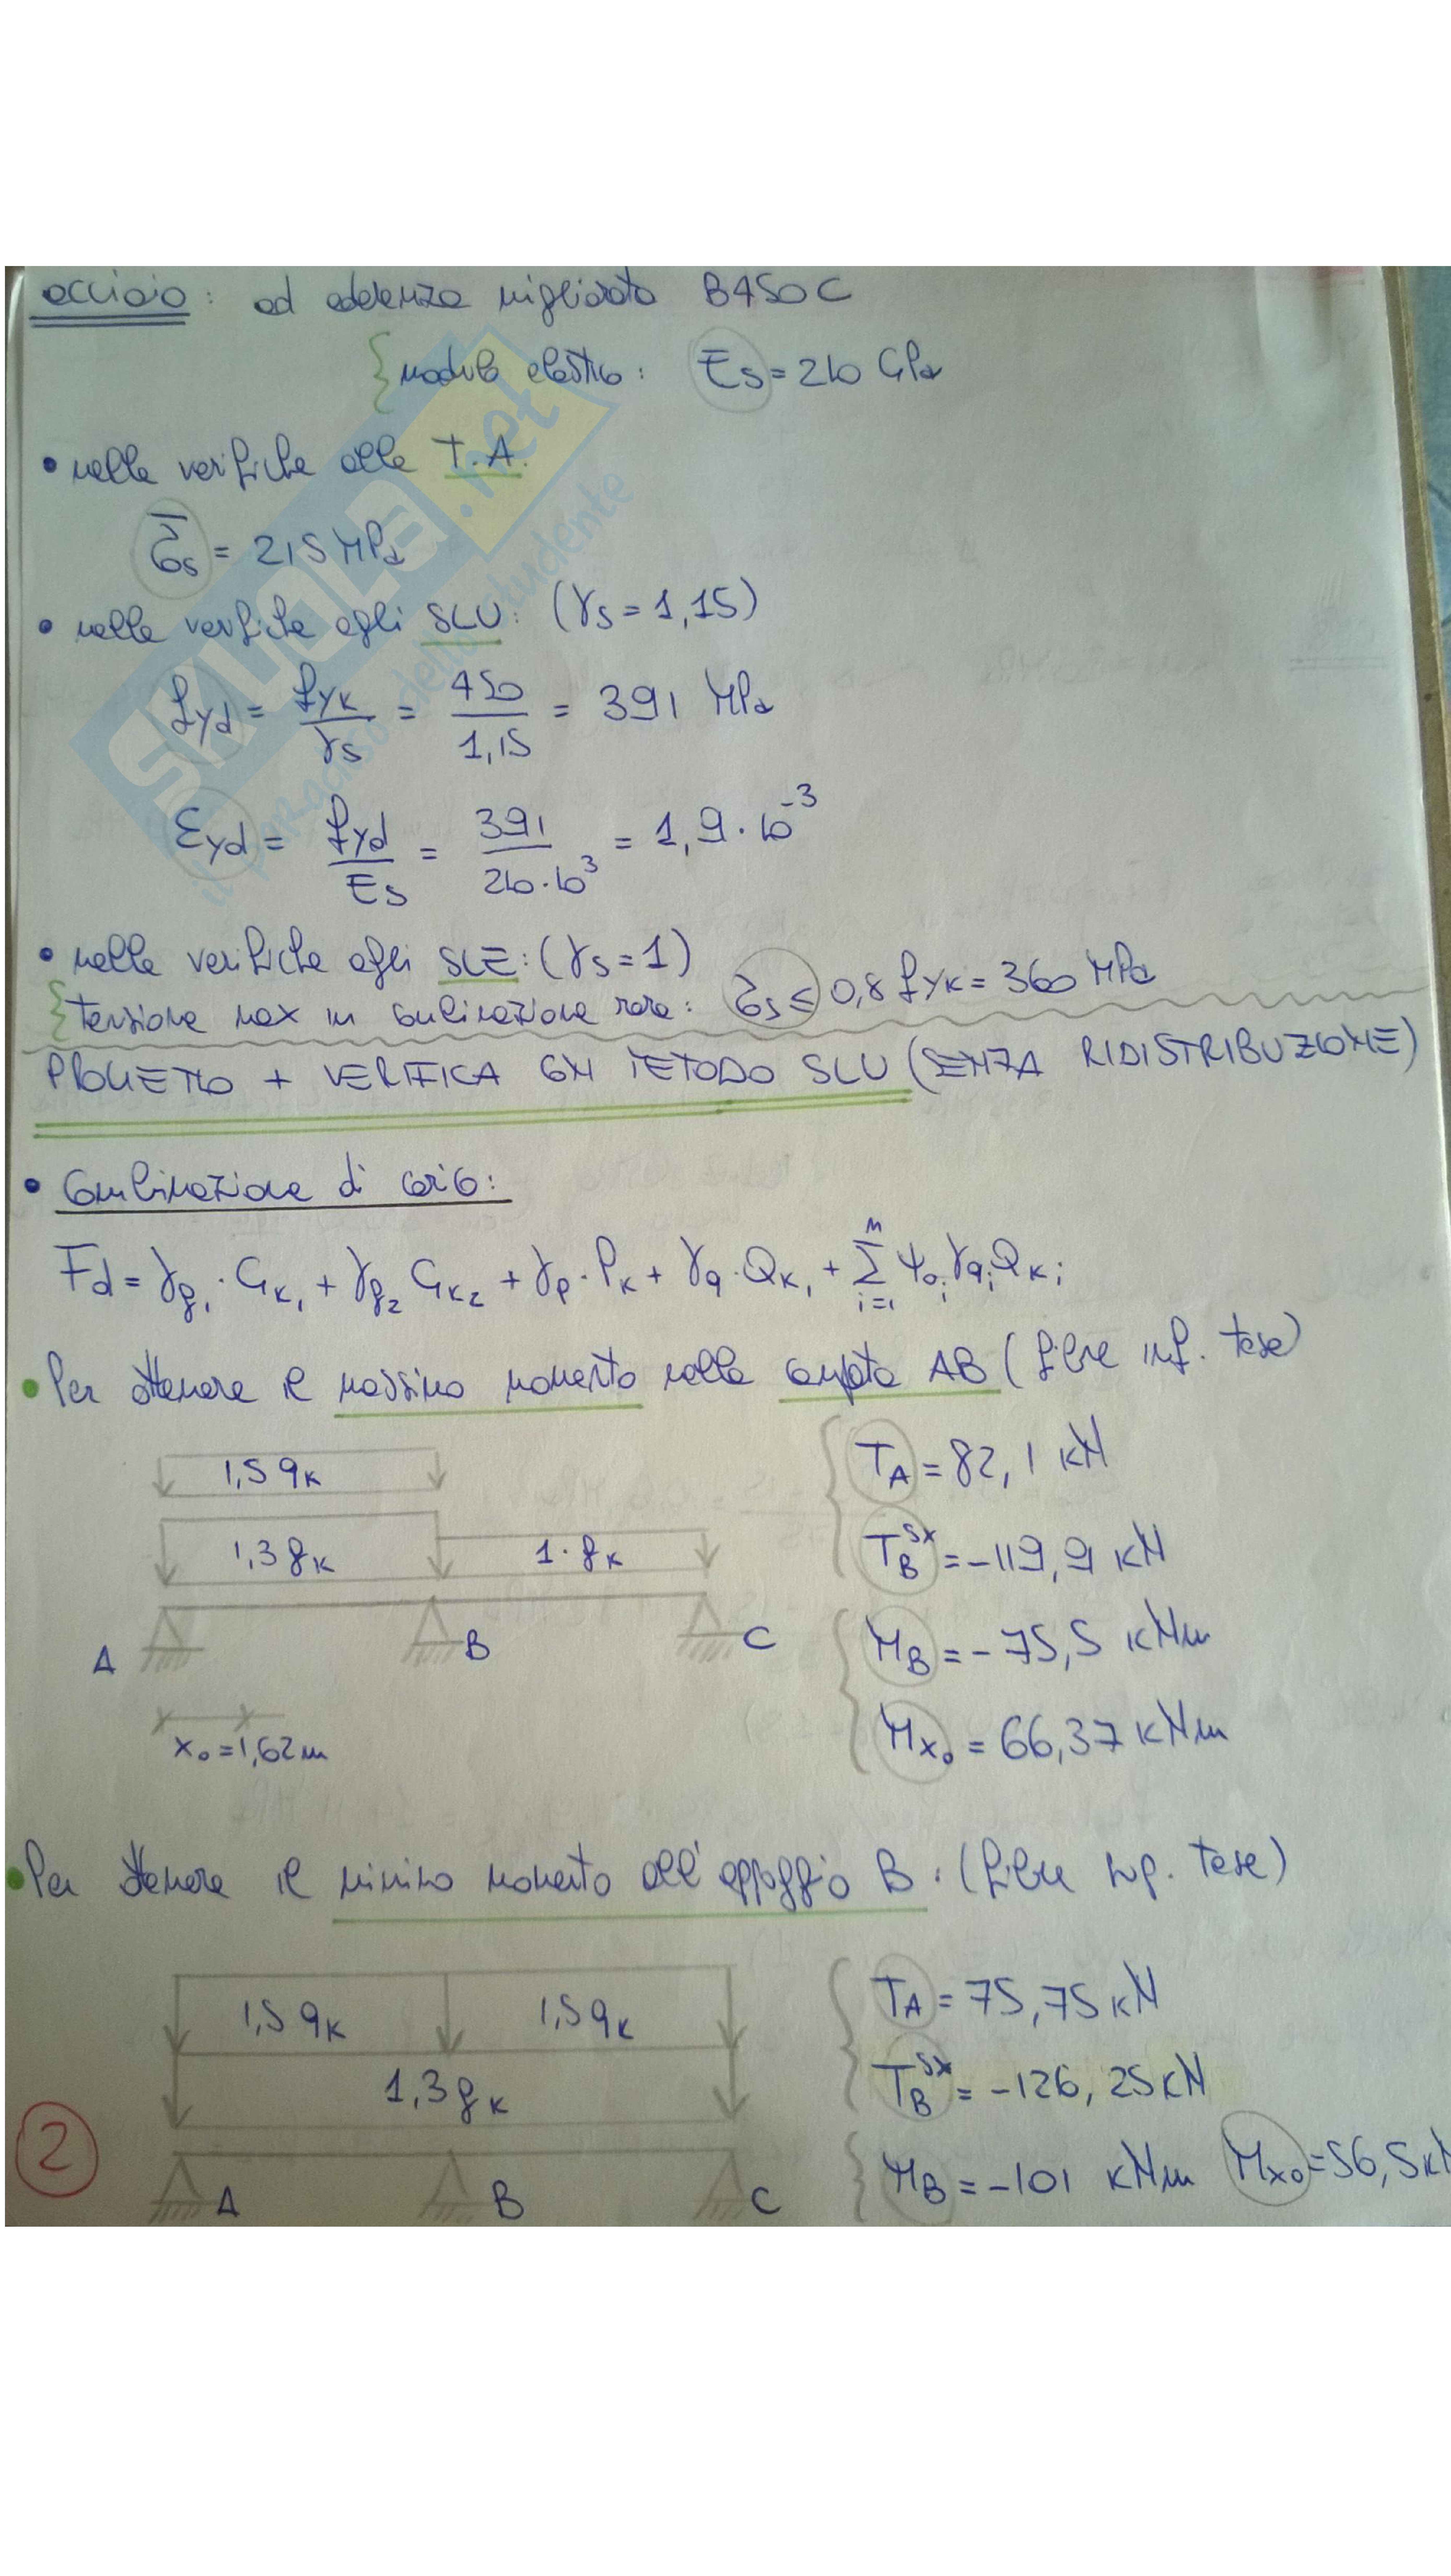 acciaio: ad aderenza migliorata B450C
modulo elastico: Es = 210 GPa
• nelle verifiche alle T.A.
σ̅s = 215 MPa
• nelle verifiche agli SLU: (γs = 1,15)
fyd = fyk/γs = 450/1,15 = 391 MPa
εyd = fyd/Es = 391/210·10³ = 1,9·10⁻³
• nelle verifiche agli SLE: (γs = 1)
tensione max in combinazione rara: σ̅s ≤ 0,8 fyk = 360 MPa
PROGETTO + VERIFICA CON METODO SLU (SENZA RIDISTRIBUZIONE)
• Combinazione di carico:
Fd = γg₁·Gk₁ + γg₂ Gk₂ + γp·Pk + γq·Qk₁ + Σ ψ₀i γqi Qki
n
i=1
• Per ottenere il massimo momento nella campata AB (fibre inf. tese)
1,5 qk
1,3 gk
1·gk
A
B
C
x₀ = 1,62 m
TA = 82,1 kN
TB sx = -119,9 kN
MB = -75,5 kNm
Mx₀ = 66,37 kNm
• Per ottenere il minimo momento all'appoggio B. (fibre sup. tese)
1,5 qk
1,5 qk
1,3 gk
A
B
C
TA = 75,75 kN
TB sx = -126,25 kN
MB = -101 kNm Mx₀ = 56,5 kN
2
SKUOLA.net
il paradiso dello studente